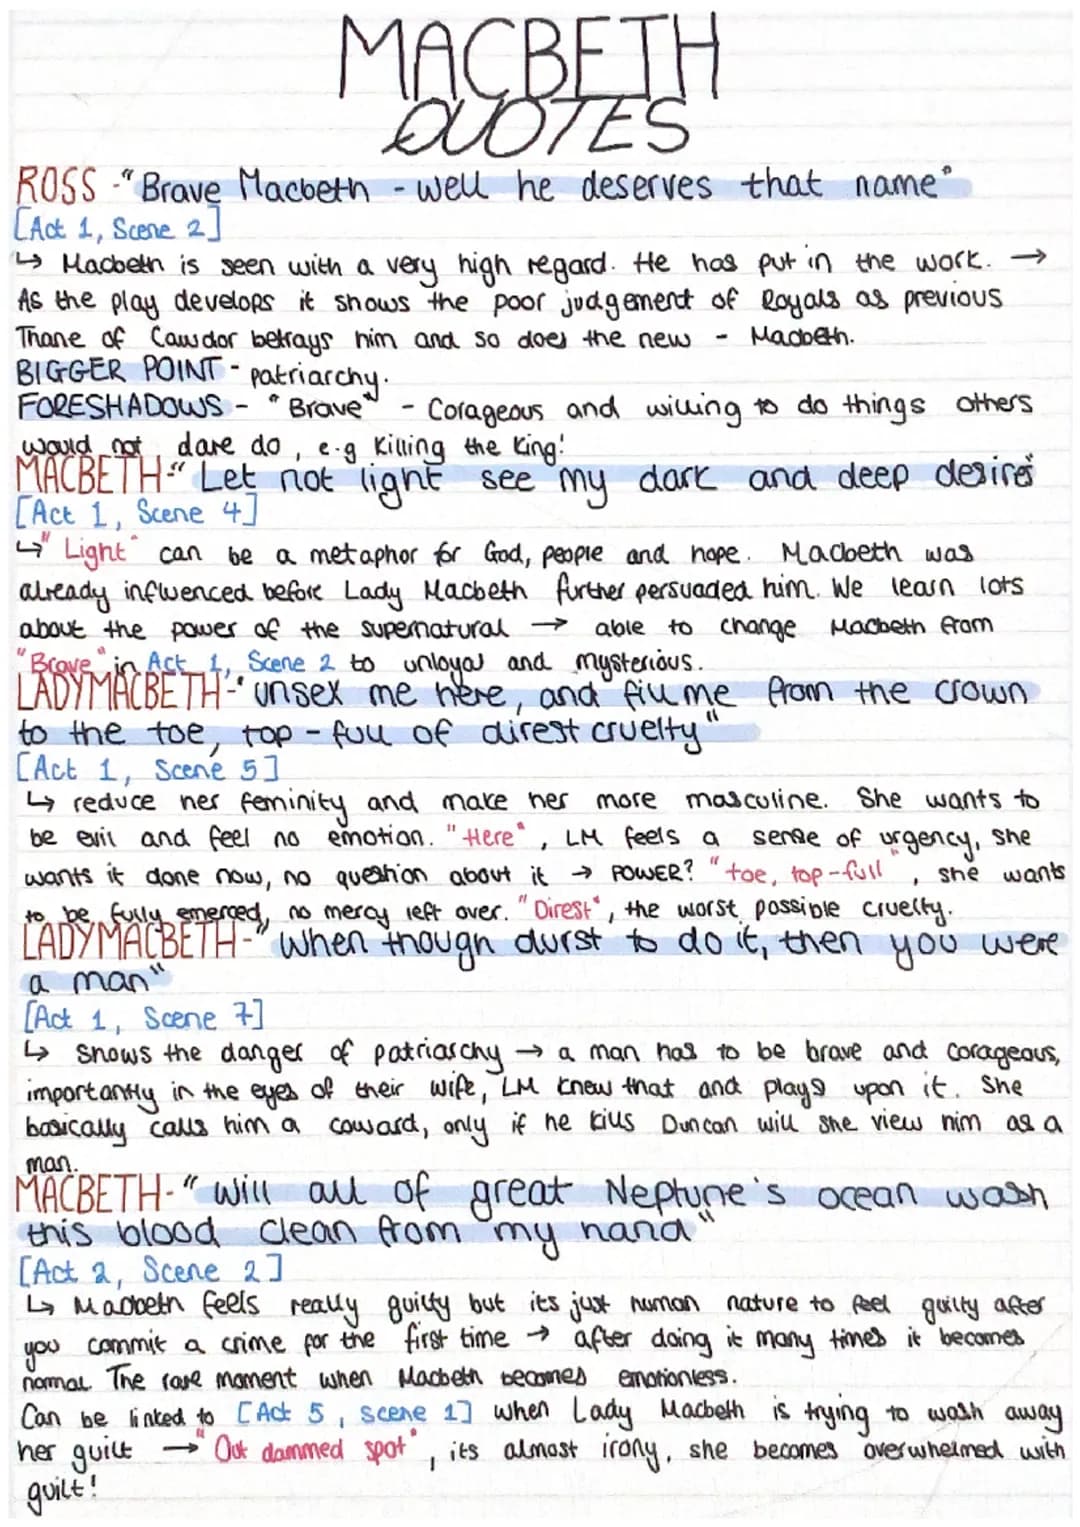 MACBETH
QUOTES
ROSS - "Brave Macbeth - well he deserves that name"
[Act 1, Scene 2]
↳ Macbeth is seen with a very high regard. He has put in the work. →
As the play develops it shows the poor judgement of Royals as previous
Thane of Cawdor betrays him and so does the new - Macbeth.
BIGGER POINT - patriarchy.
FORESHADOWS - "Brave" - Corageous and willing to do things others
would not dare do, e.g killing the king!
MACBETH - "Let not light see my dark and deep desires
[Act 1, Scene 4]
↳ "Light" can be a metaphor for God, people and hope. Macbeth was
already influenced before Lady Macbeth further persuaded him. We learn lots
about the power of the supernatural → able to change Macbeth from
"Brave" in Act 1, Scene 2 to unloyal and mysterious.
LADYMACBETH - "unsex me here, and fill me from the crown
to the toe, top - full of direst cruelty"
[Act 1, Scene 5]
↳ reduce her feminity and make her more masculine. She wants to
be evil and feel no emotion. "Here", LM feels a sense of urgency, she
wants it done now, no question about it → POWER? "toe, top-full", she wants
to be fully emerced, no mercy left over. "Direst", the worst possible cruelty.
LADYMACBETH - "When though durst to do it, then you were
a man"
[Act 1, Scene 7]
↳ Shows the danger of patriarchy → a man has to be brave and corageous,
importantly in the eyes of their wife, LM knew that and plays upon it. She
basically calls him a coward, only if he kills Duncan will she view him as a
man.
MACBETH - "will all of great Neptune's ocean wash
this blood clean from my hand"
[Act 2, Scene 2]
↳ Macbeth feels really guilty but its just human nature to feel guilty after
you commit a crime for the first time → after doing it many times it becomes
normal. The rare moment when Macbeth becomes emotionless.
Can be linked to [Act 5, Scene 1] when Lady Macbeth is trying to wash away
her guilt → "Out dammed spot", its almost irony, she becomes overwhelmed with
guilt!